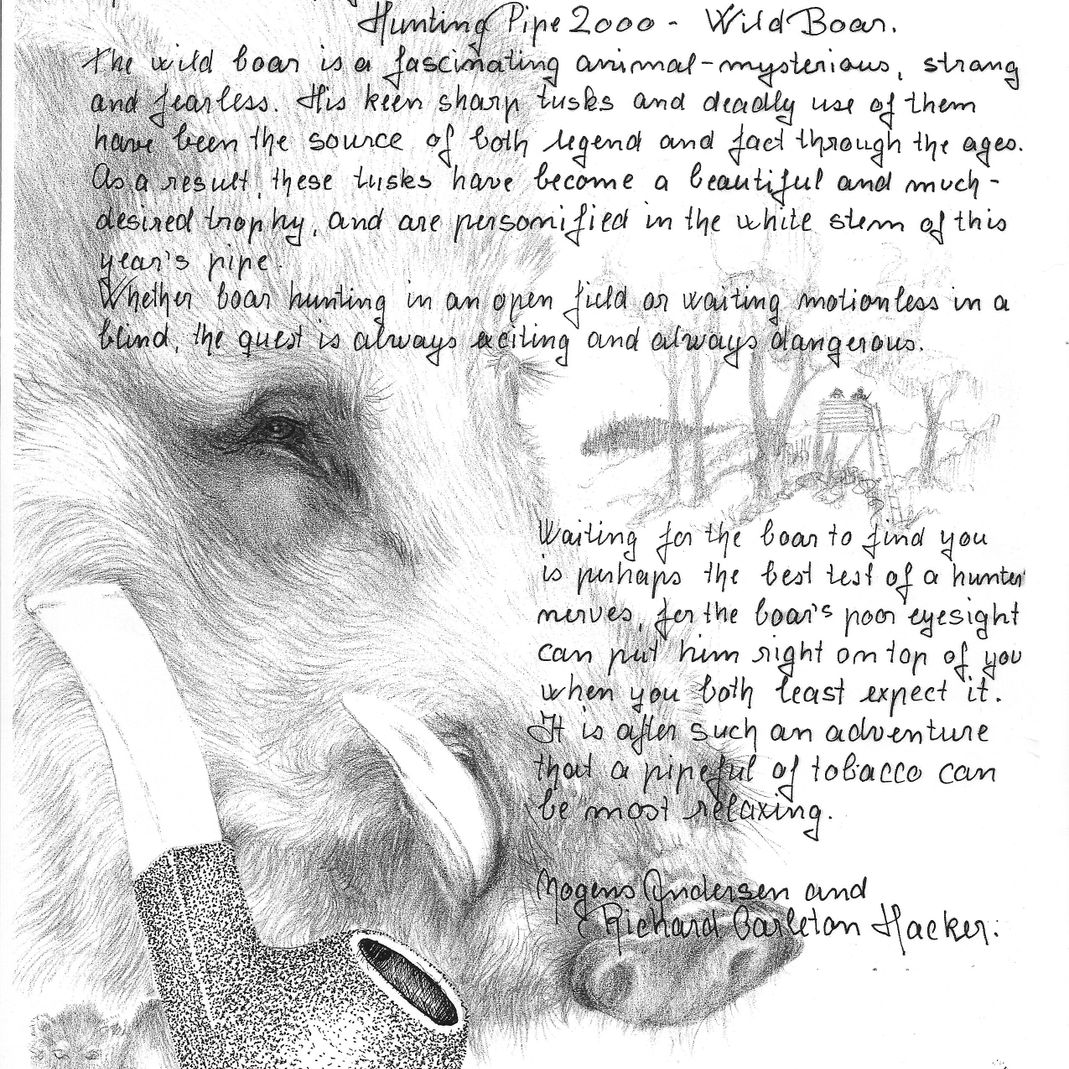 Hunting Pipe 2000 - Wild Boar.
The wild boar is a fascinating animal-mysterious, strong
and fearless. His keen sharp tusks and deadly use of them
have been the source of both legend and fact through the ages.
As a result, these tusks have become a beautiful and much-
desired trophy, and are personified in the white stem of this
year's pipe.
Whether boar hunting in an open field or waiting motionless in a
blind, the quest is always exciting and always dangerous.
Waiting for the boar to find you
is perhaps the best test of a hunter'
nerves, for the boar's poor eyesight
can put him right on top of you
when you both least expect it.
It is after such an adventure
that a pipeful of tobacco can
be most relaxing.
Mogens Andersen and
Richard Carleton Hacker.